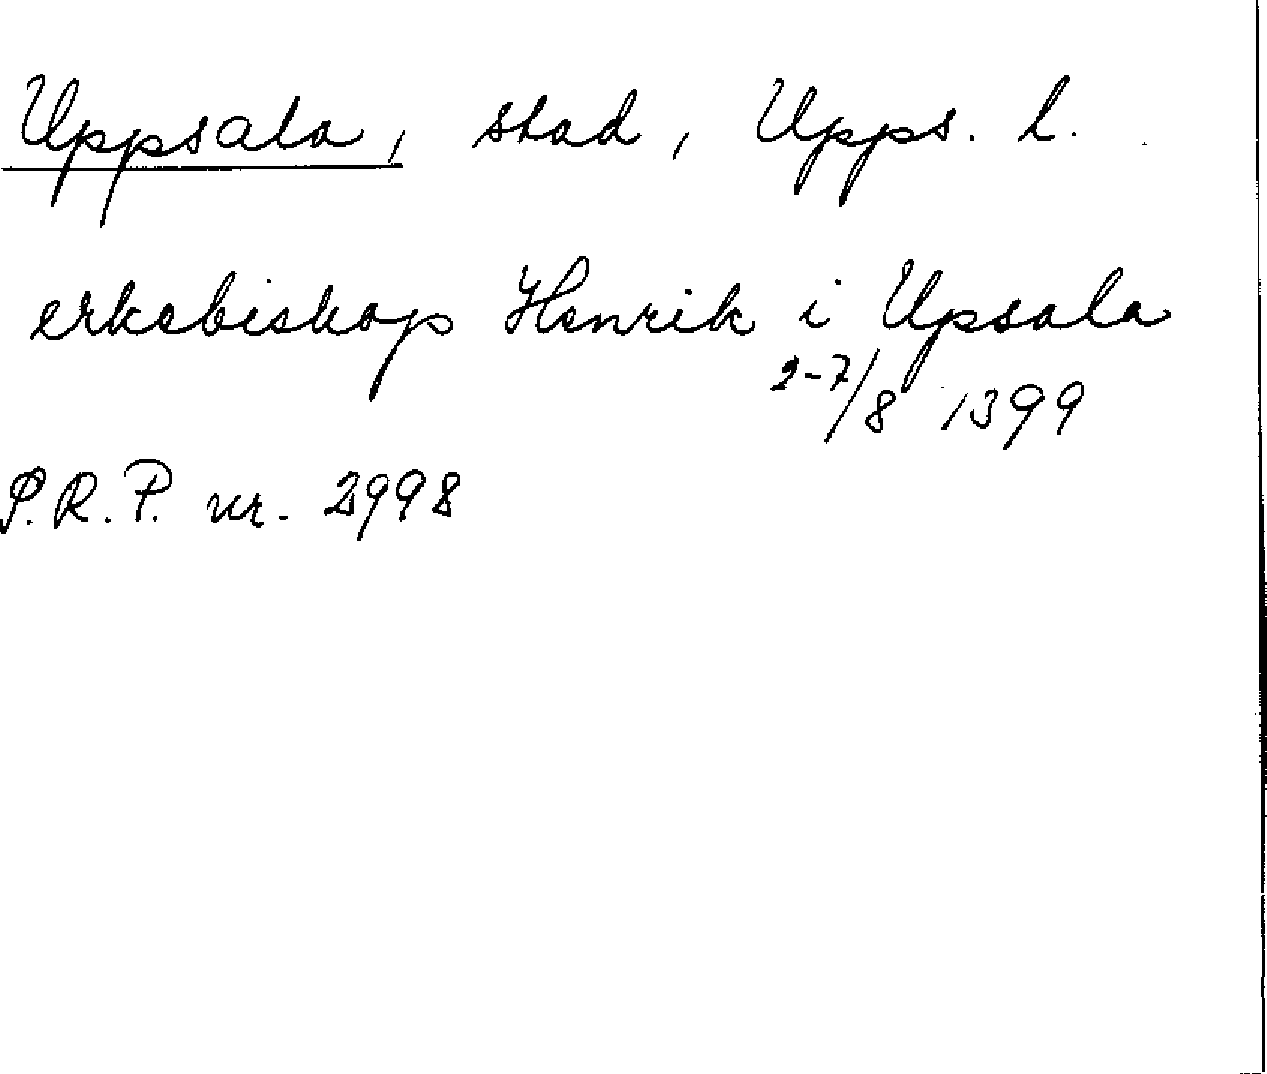 Uppsala, stad, Upps. l.
erkebiskop Henrik i Upsala
2-7/8 1399
P.R.P. nr. 2998